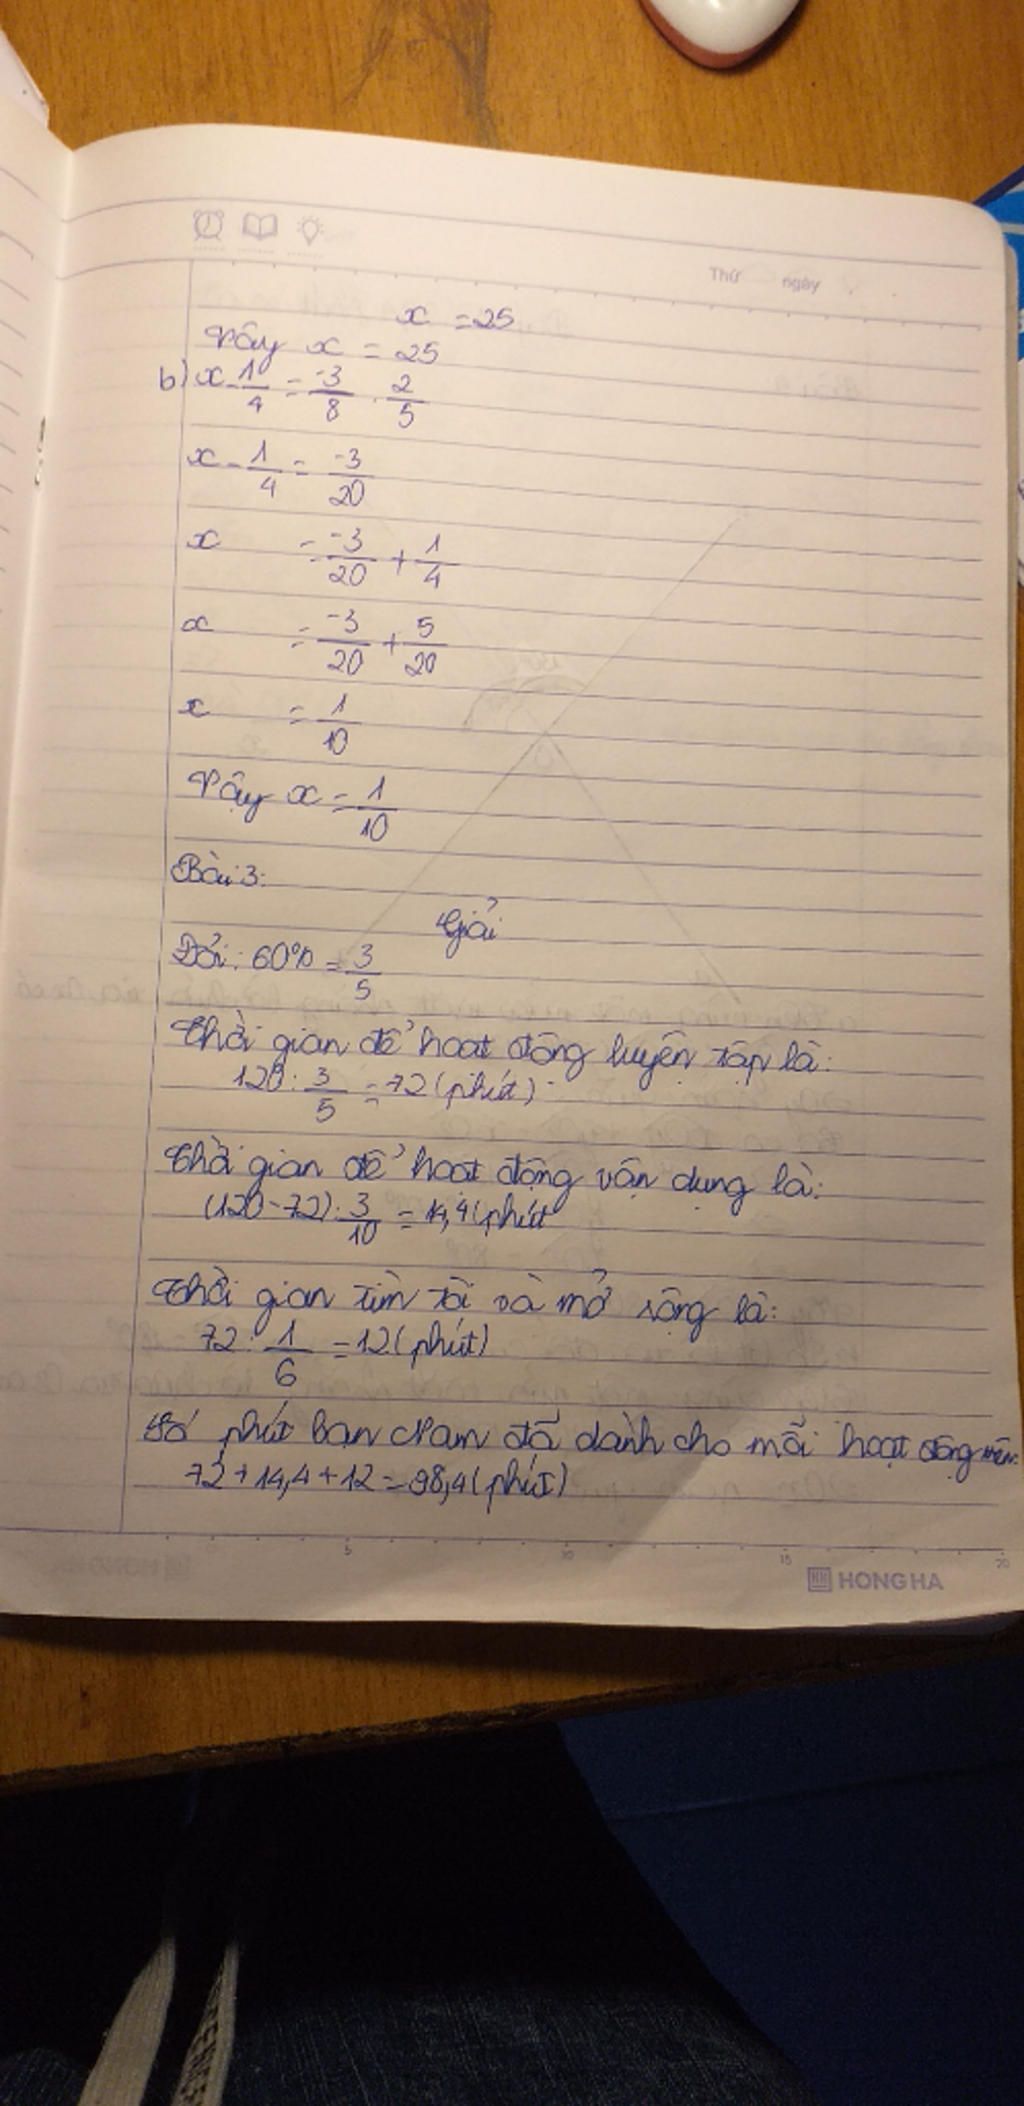 Thứ ngày
x = 25
Vậy x = 25
b) x - 1/4 = -3/8 . 2/5
x - 1/4 = -3/20
x = -3/20 + 1/4
x = -3/20 + 5/20
x = 1/10
Vậy x = 1/10
Bài 3:
Giải
Đổi: 60% = 3/5
Thời gian để hoạt động luyện tập là:
120 . 3/5 = 72 (phút)
Thời gian để hoạt động vận dụng là:
(120 - 72) . 3/10 = 14,4 (phút
Thời gian tìm tòi và mở rộng là:
72 . 1/6 = 12 (phút)
Số phút bạn Nam đã dành cho mỗi hoạt động trên:
72 + 14,4 + 12 = 98,4 (phút)
5 10 15 20
HH HONG HA